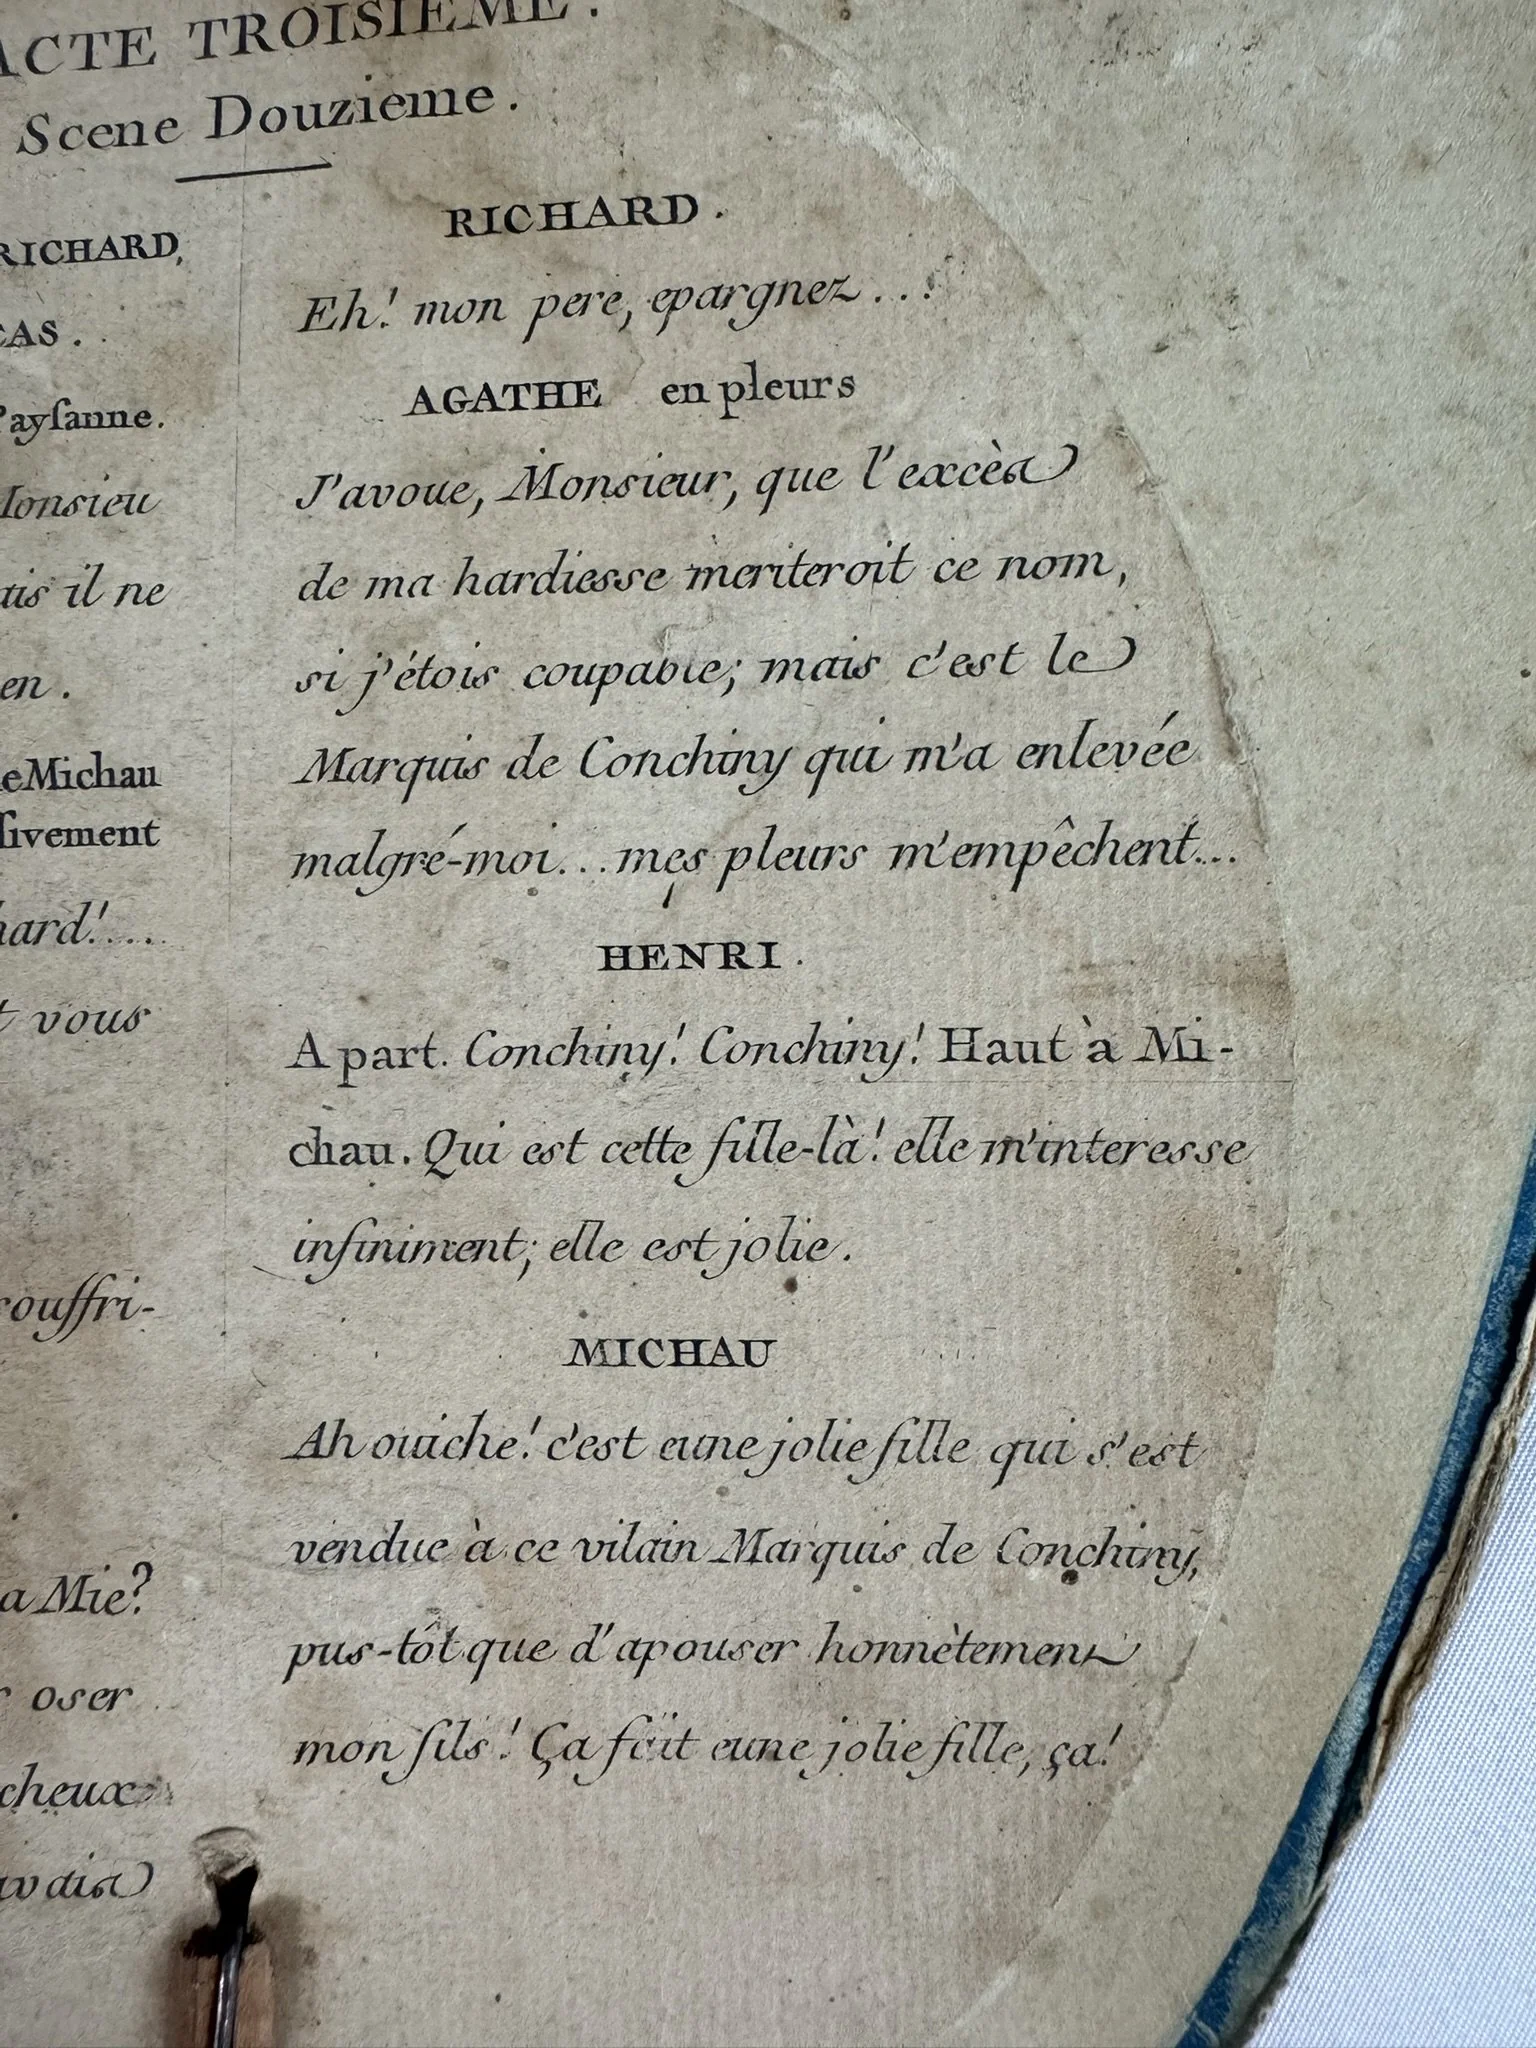 ACTE TROISIEME.
Scene Douzieme.
RICHARD,
Paysanne.
Monsieu
il ne
Michau
vous
Mie?
oser
RICHARD.
Eh! mon pere, epargnez...
AGATHE en pleurs
J'avoue, Monsieur, que l'excès
de ma hardiesse meriteroit ce nom,
si j'étois coupable; mais c'est le
Marquis de Conchiny qui m'a enlevée
malgré-moi... mes pleurs m'empêchent...
HENRI.
A part. Conchiny! Conchiny! Haut à Mi-
chau. Qui est cette fille-là! elle m'interesse
infiniment; elle est jolie.
MICHAU
Ah ouiche! c'est eune jolie fille qui s'est
vendue à ce vilain Marquis de Conchiny,
pus-tôt que d'apouser honnètement
mon fils! Ça fait eune jolie fille, ça!